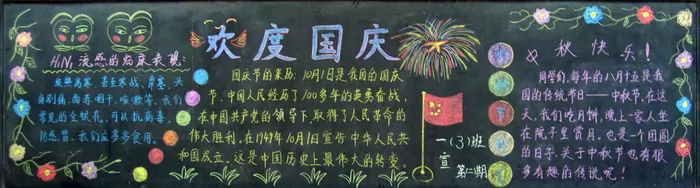 H₁N₁流感的临床表现:
发热高寒、甚至寒战、鼻塞、头
身剧痛,面赤咽干,咳嗽等,我们
常见的金银花,可以抗病毒、
防感冒,我们应多多食用。
欢度国庆
国庆节的来历:10月1日是我国的国庆
节、中国人民经历了100多年的英勇奋战,
在中国共产党的领导下,取得了人民革命的
伟大胜利。在1949年10月1日宣告中华人民共
和国成立。这是中国历史上最伟大的转变。
一(3)班
宣 第(二)期
中秋快乐!
同学们,每年的八月十五是我
国的传统节日——中秋节,在这
天,我们吃月饼,晚上一家人坐
在院子里赏月,也是一个团圆
的日子,关于中秋节也有很
多有趣的传说呢!